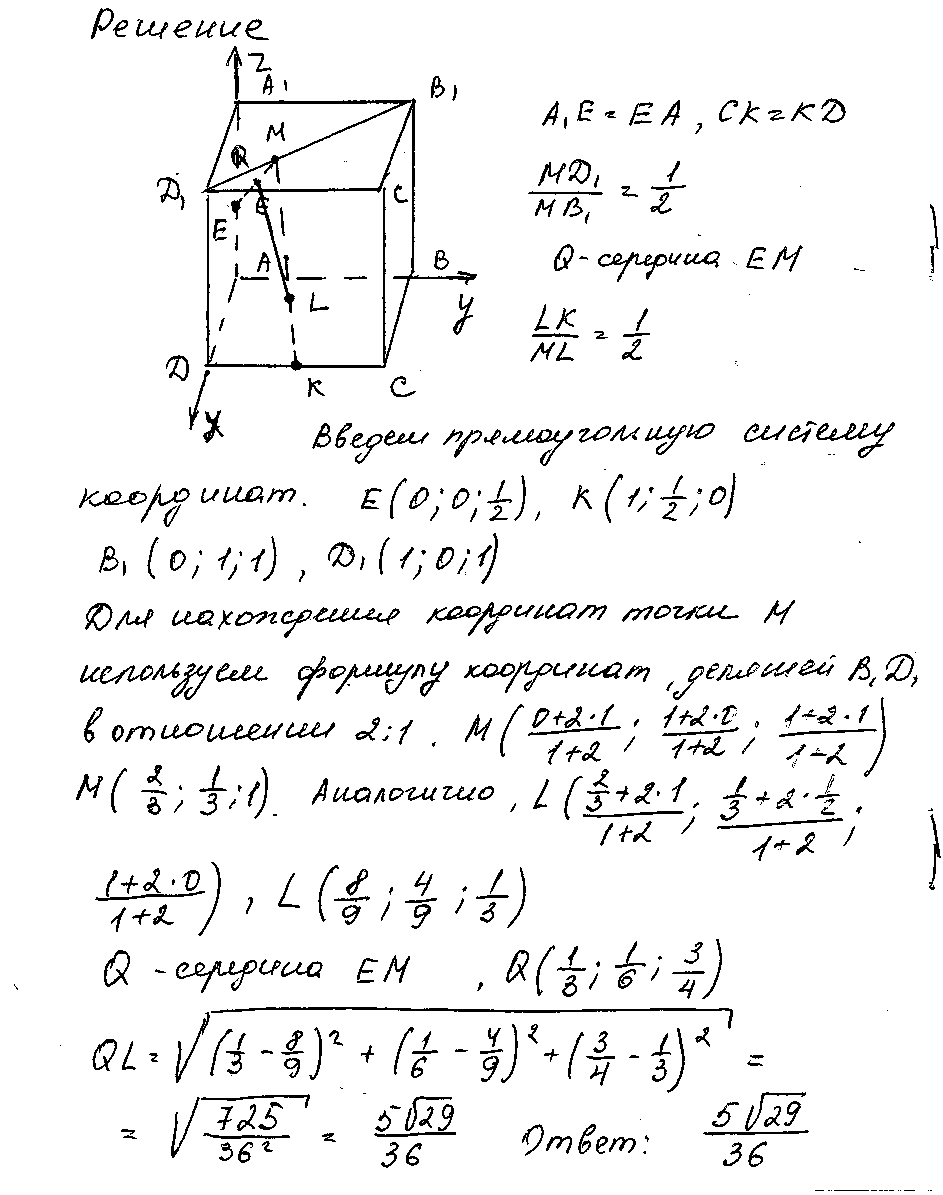 Решение
Z
A₁
B₁
M
Q
D₁
C
E
E
A
B
L
y
D
K
C
x
A₁E = EA , CK = KD
MD₁/MB₁ = 1/2
Q - середина EM
LK/ML = 1/2
Введем прямоугольную систему
координат. E(0;0;1/2), K(1;1/2;0)
B₁(0;1;1), D₁(1;0;1)
Для нахождения координат точки M
используем формулу координат, делящей B₁D₁
в отношении 2:1. M((0+2·1)/(1+2); (1+2·0)/(1+2); (1+2·1)/(1+2))
M(2/3; 1/3; 1). Аналогично, L((2/3+2·1)/(1+2); (1/3+2·1/2)/(1+2);
(1+2·0)/(1+2)), L(8/9; 4/9; 1/3)
Q - середина EM , Q(1/3; 1/6; 3/4)
QL = √((1/3 - 8/9)² + (1/6 - 4/9)² + (3/4 - 1/3)²) =
= √(725/36²) = 5√29/36 Ответ: 5√29/36